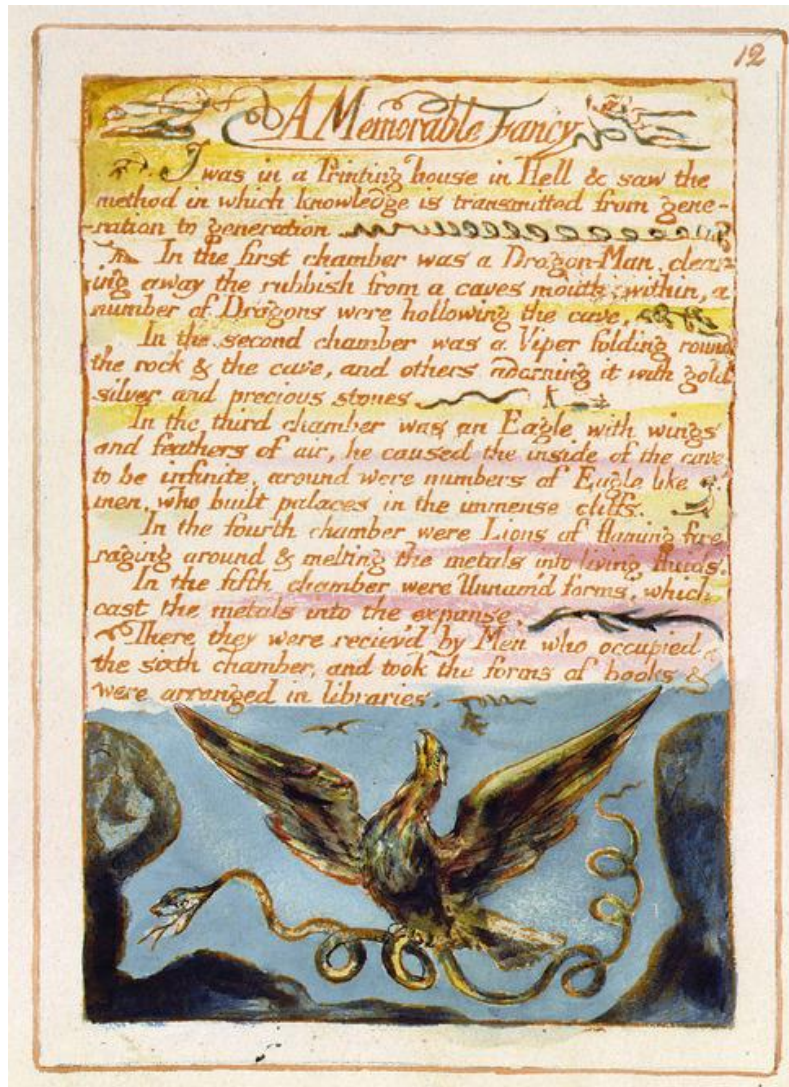 12
A Memorable Fancy
I was in a Printing house in Hell & saw the
method in which knowledge is transmitted from gene-
-ration to generation
In the first chamber was a Dragon-Man, clear-
ing away the rubbish from a caves mouth; within, a
number of Dragons were hollowing the cave,
In the second chamber was a Viper folding round
the rock & the cave, and others adorning it with gold
silver and precious stones
In the third chamber was an Eagle with wings
and feathers of air, he caused the inside of the cave
to be infinite, around were numbers of Eagle like
men, who built palaces in the immense cliffs.
In the fourth chamber were Lions of flaming fire
raging around & melting the metals into living fluids.
In the fifth chamber were Unnam'd forms, which
cast the metals into the expanse.
There they were reciev'd by Men who occupied
the sixth chamber, and took the forms of books &
were arranged in libraries.